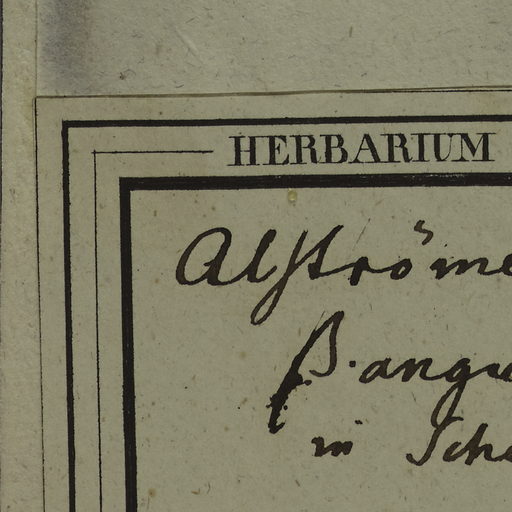 HERBARIUM
Alströme
β. angu
in Sch